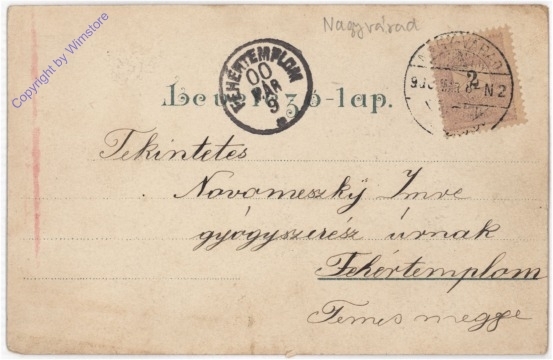 Copyright by Wimstore
Nagyvárad
FEHÉRTEMPLOM
00
MÁR
9
NAGYVÁRAD
N2
2
Levelező-lap.
Tekintetes
Novomeszky Imre
gyógyszerész úrnak
Fehértemplom
Temes megye